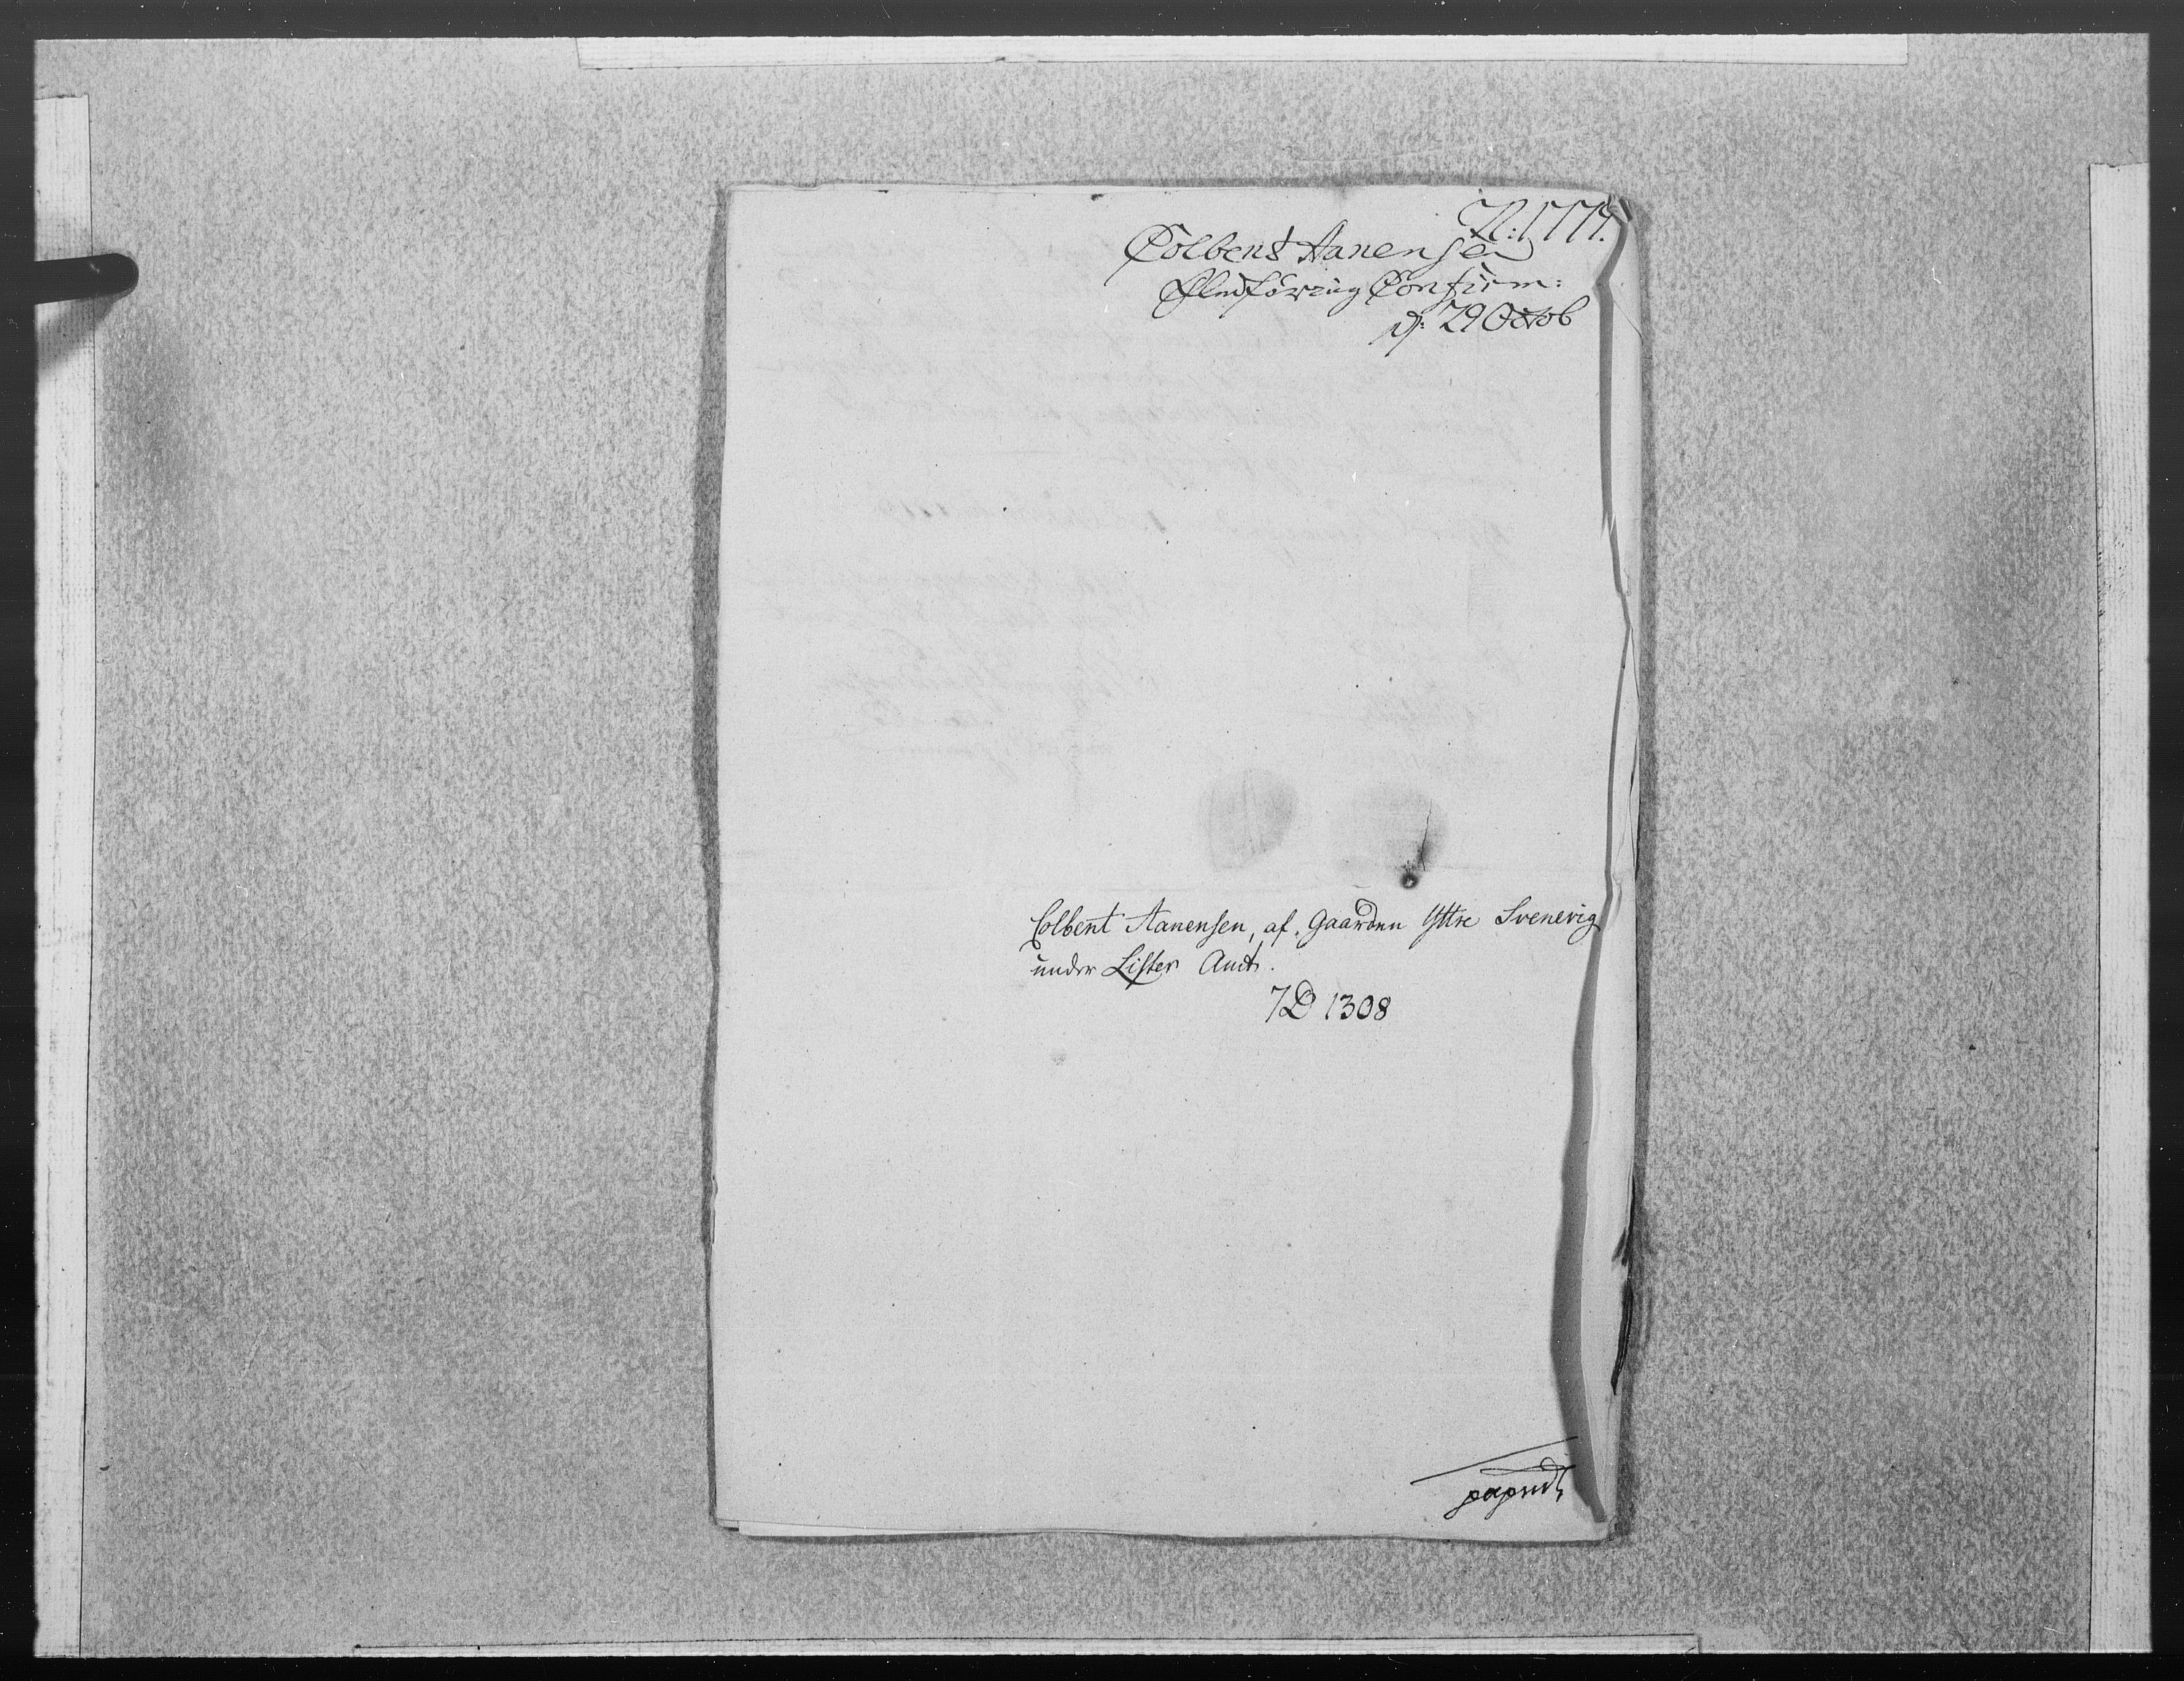 N: 1777.
Colbent Aanensen
Confirm:
d: 29 Octob
Colbent Aanensen, af Gaarden Yttre Svenevig
under Lister Amt.
7D 1308